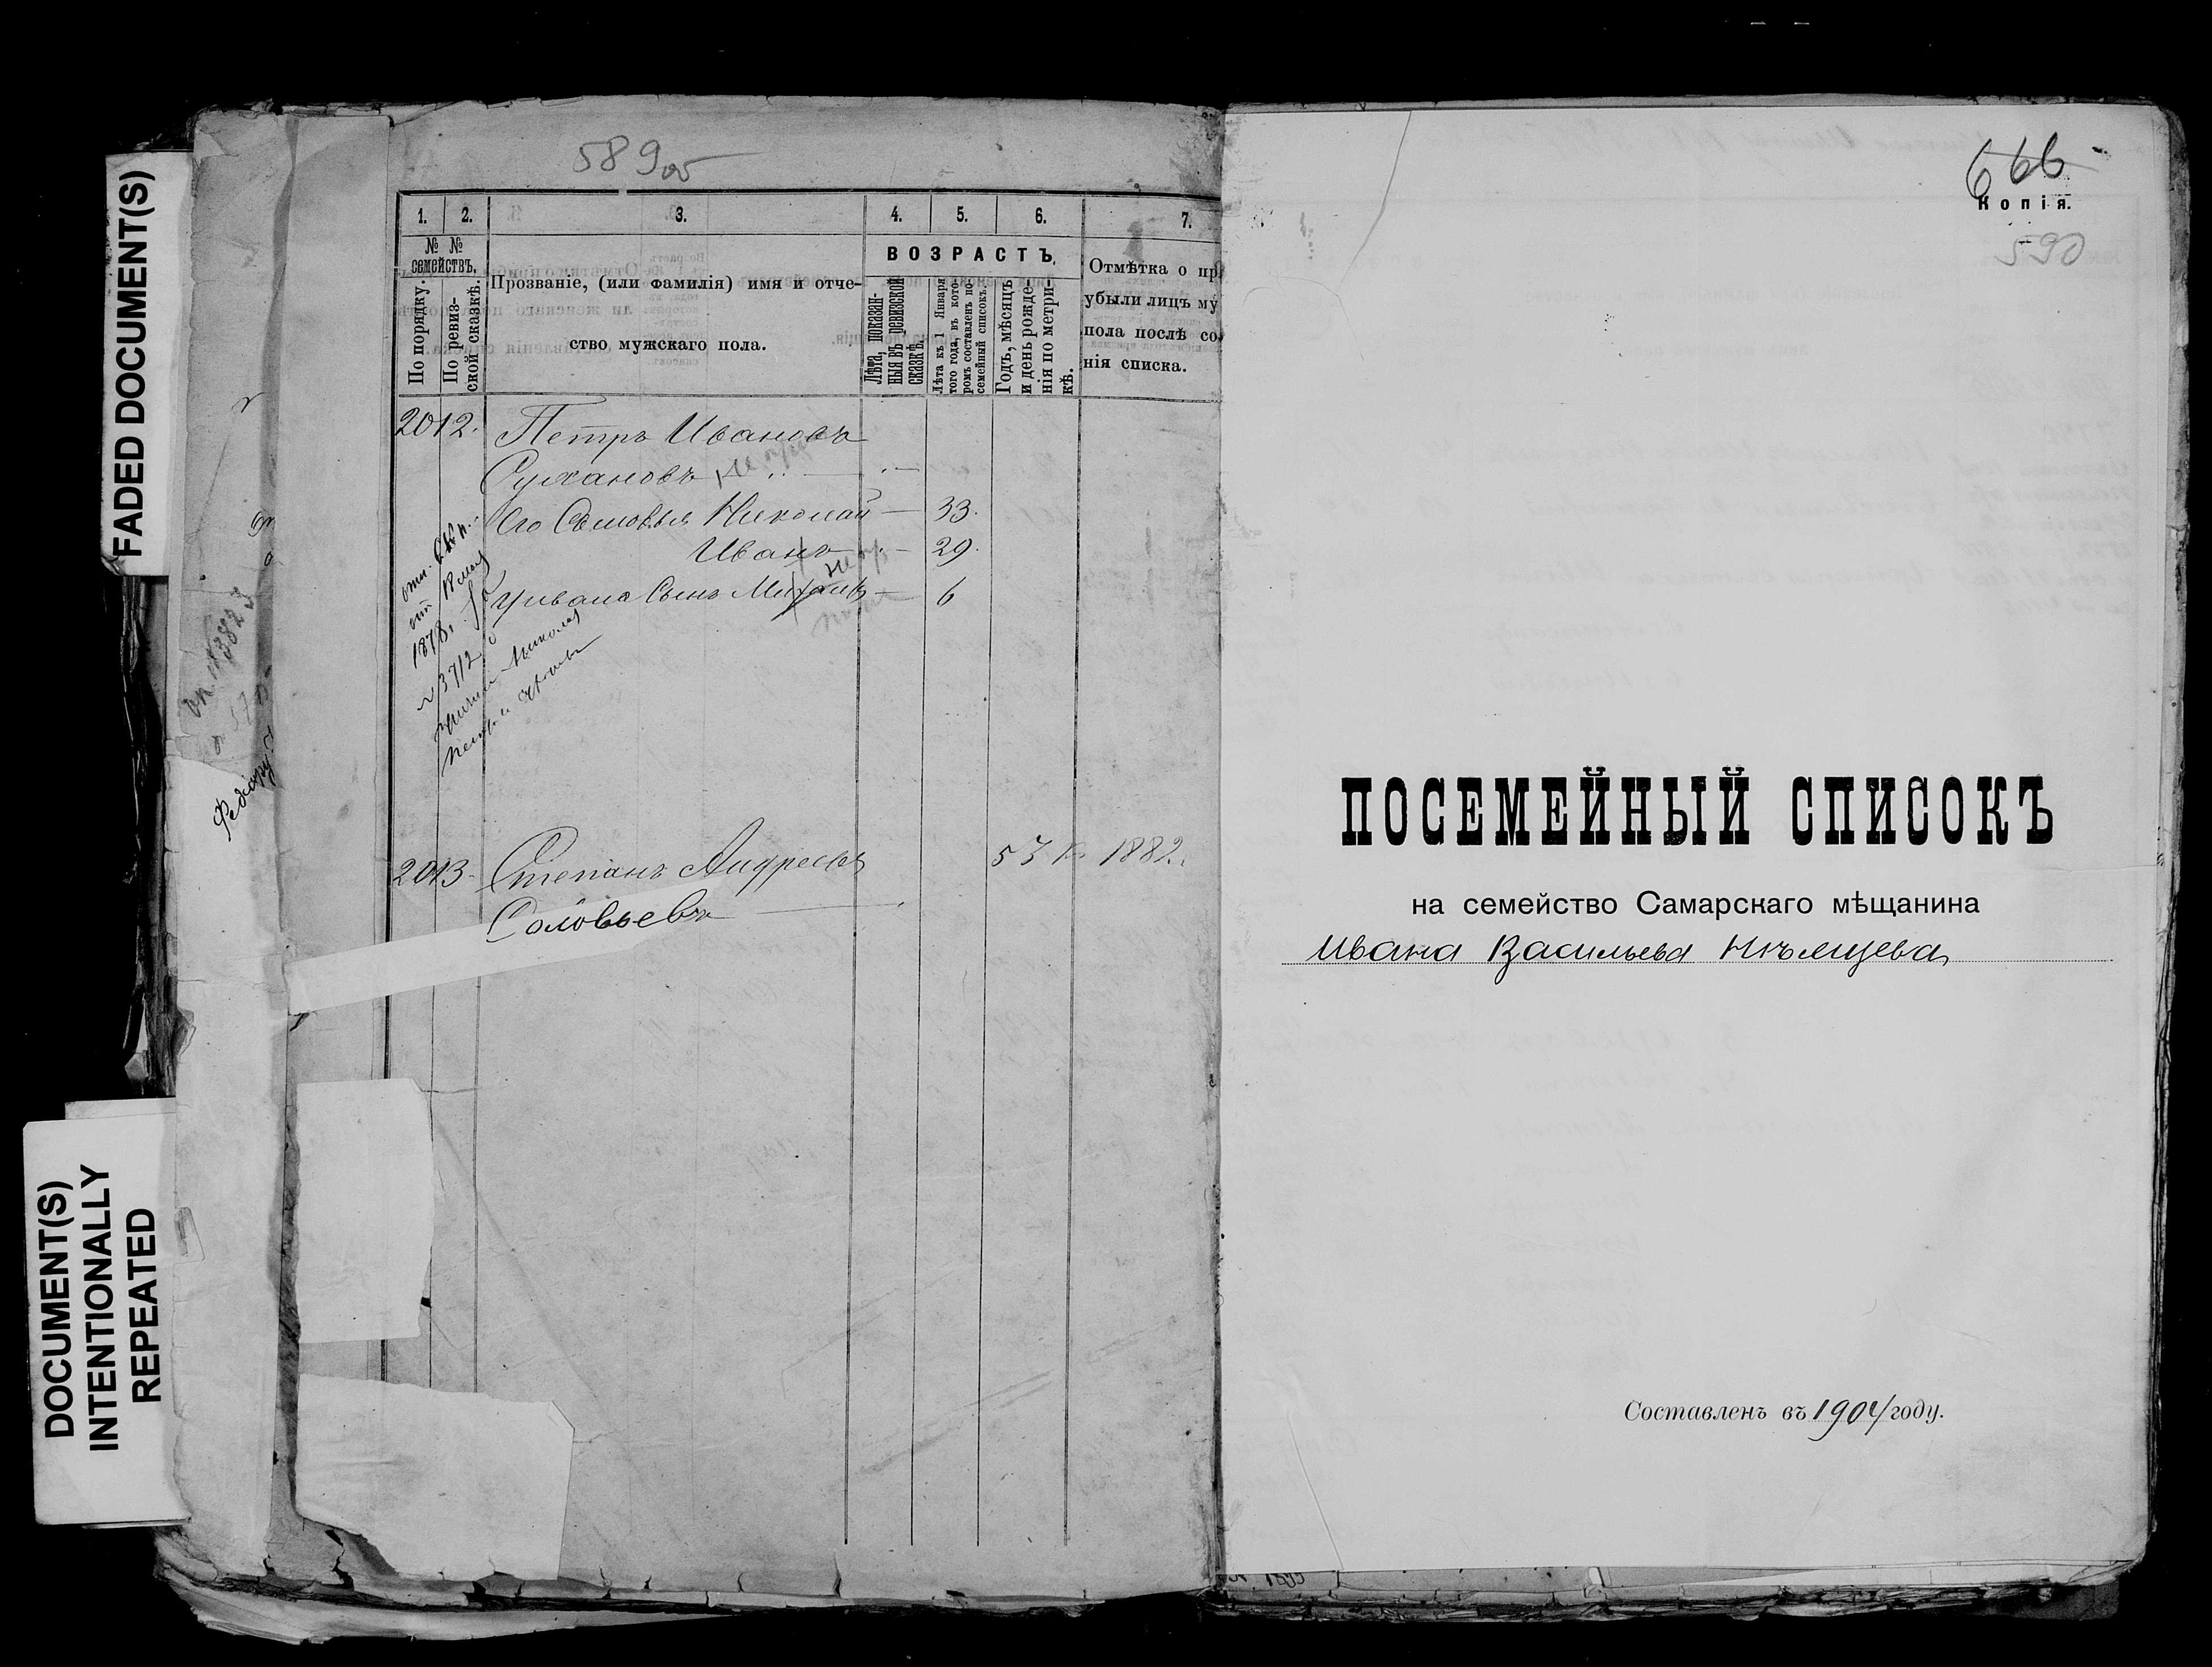 FADED DOCUMENT(S)
DOCUMENT(S)
INTENTIONALLY
REPEATED
Федору
589 об
1. 2. 3. 4. 5. 6. 7.
№ № семействъ.
По порядку.
По ревизской сказкѣ.
Прозваніе, (или фамилія) имя и отче-
ство мужскаго пола.
ВОЗРАСТЪ.
Лѣта, показан-
ныя въ ревизской
сказкѣ.
Лѣта къ 1 Января
того года, въ кото-
ромъ составленъ по-
семейный списокъ.
Годъ, мѣсяцъ
и день рожде-
нія по метри-
кѣ.
Отмѣтка о пр
убыли лицъ му
пола послѣ со
нія списка.
2012. Петръ Ивановъ
Сухановъ
Его Сыновья Николай — 33.
Иванъ — 29.
У Ивана Сынъ Михаилъ — 6
18 мая
1878 г.
№ 3712
2013. Степанъ Андреевъ 53 к 1882.
Соловьевъ
666
Копія.
590
ПОСЕМЕЙНЫЙ СПИСОКЪ
на семейство Самарскаго мѣщанина
Ивана Васильева Нѣмцева
Составленъ въ 1904 году.